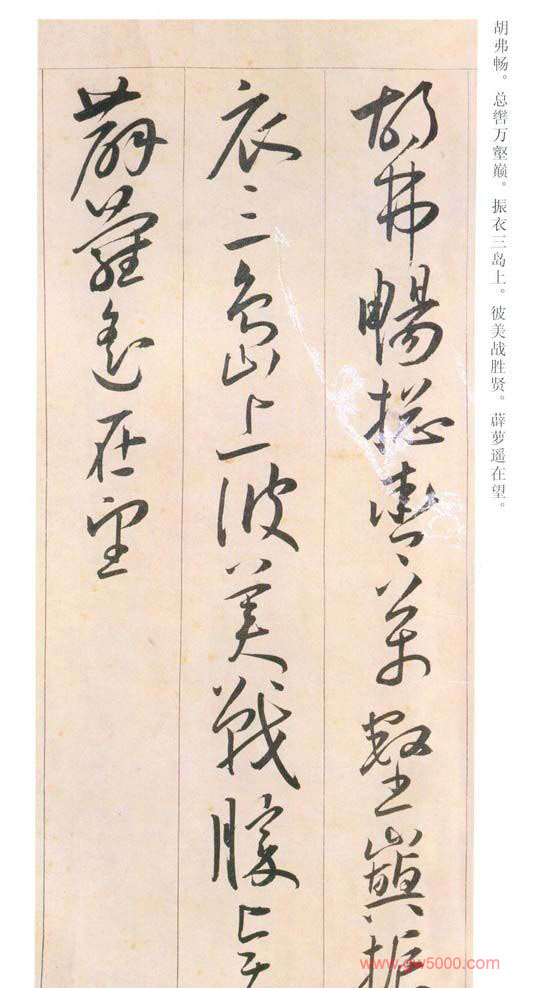 胡弗畅。总辔万壑巅。振衣三岛上。彼美战胜贤。薜萝遥在望。
胡弗暢揔轡万壑巔振
衣三島上彼美戰勝
薜蘿遙在望
www.gw5000.com